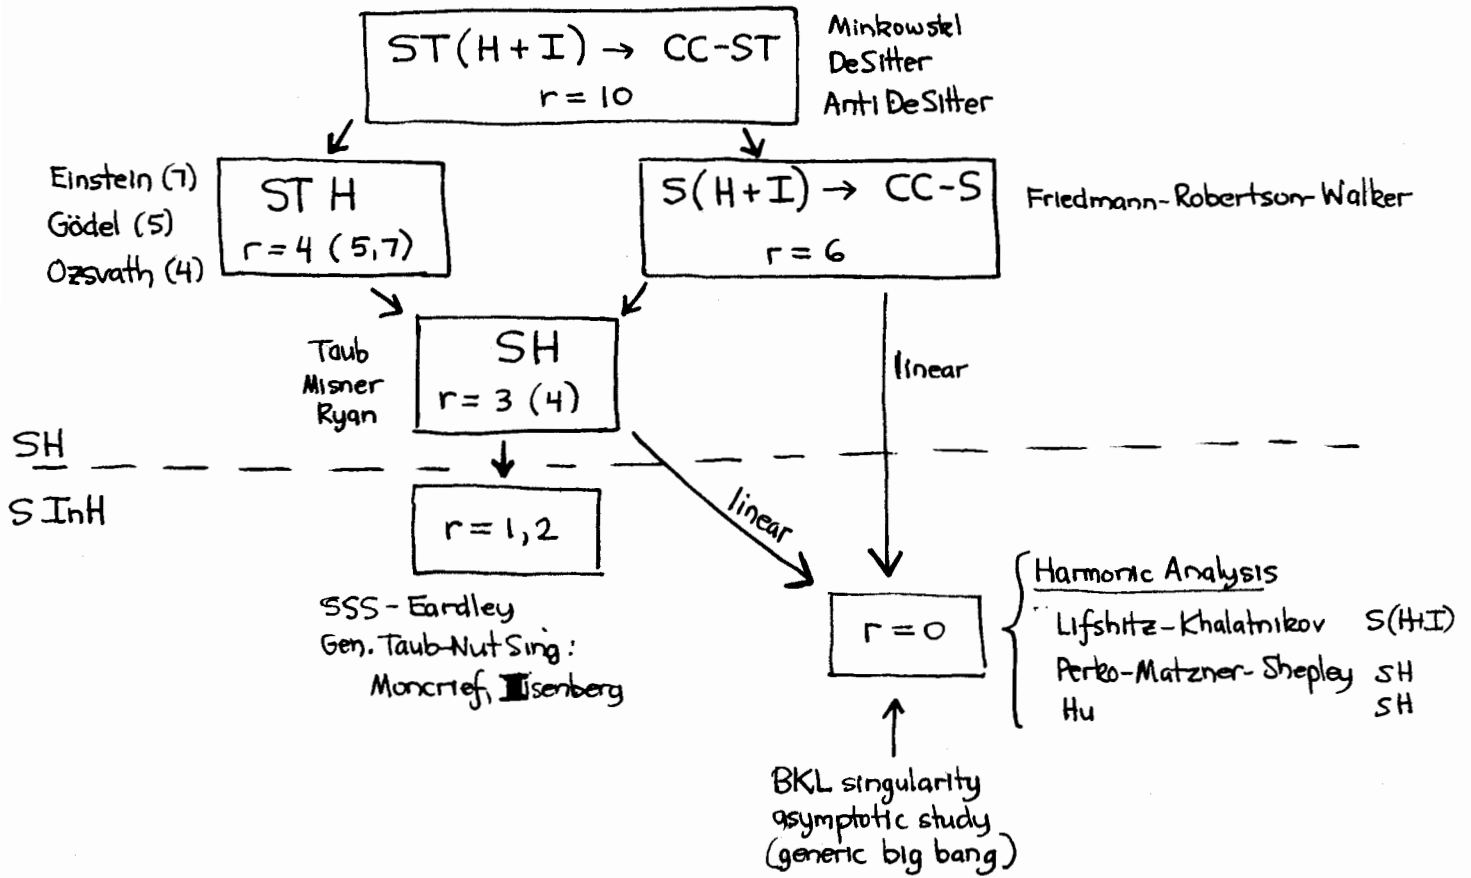 ST(H+I) → CC-ST
r = 10
Minkowski
DeSitter
Anti DeSitter
Einstein (7)
Gödel (5)
Ozsvath (4)
ST H
r = 4 (5,7)
S(H+I) → CC-S
r = 6
Friedmann-Robertson-Walker
Taub
Misner
Ryan
SH
r = 3 (4)
linear
SH
S InH
r = 1,2
linear
SSS - Eardley
Gen. Taub-Nut Sing:
Moncrief, Isenberg
r = 0
Harmonic Analysis
Lifshitz-Khalatnikov S(H+I)
Perko-Matzner-Shepley SH
Hu SH
BKL singularity
asymptotic study
(generic big bang)